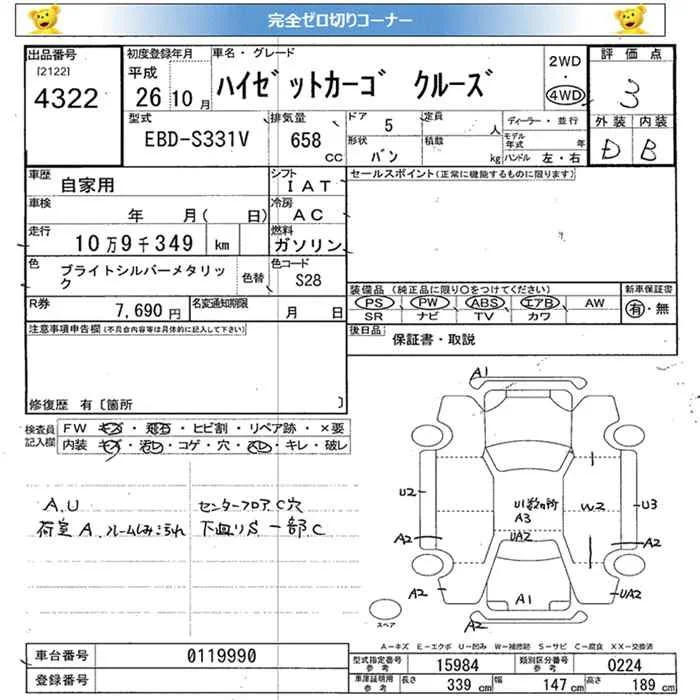 完全ゼロ切りコーナー
出品番号
[2122]
4322
初度登録年月
平成
26 10月
車名・グレード
ハイゼットカーゴ クルーズ
2WD
・
4WD
評価点
3
外装 内装
D B
型式
EBD-S331V
排気量
658
CC
ドア 5
定員 人
形状 バン
積載 kg
ディーラー・並行
モデル年式 年
ハンドル 左・右
車歴
自家用
シフト
IAT
車検
年 月( 日)
冷房
AC
走行
10万9千349 km
燃料
ガソリン
色
ブライトシルバーメタリック
色替
色コード
S28
R券
7,690円
名変通知期限
月 日
セールスポイント(正常に機能するものに限ります)
装備品 (純正品に限り○をつけてください)
新車保証書
PS PW ABS エアB AW
SR ナビ TV カワ
有・無
後日品
保証書・取説
注意事項申告欄(不具合内容等は具体的に記入して下さい)
修復歴 有〔箇所 〕
検査員記入欄
FW キズ・飛石・ヒビ割・リペア跡・×要
内装 キズ・汚レ・コゲ・穴・スレ・キレ・破レ
A.U
荷室A.ルームしみこられ
センターフロアC穴
下廻りS 一部C
A1
U2
U1数ヶ所
A3
W2
U3
A2
UA2
A2
A2
A1
UA2
A2
スペア
A-キズ E-エクボ U-凹み W-補修跡 S-サビ C-腐食 XX-交換済
車台番号
0119990
登録番号
型式指定番号
参考
15984
類別区分番号
参考
0224
車庫証明用
参考
長さ 339 cm
幅 147 cm
高さ 189 cm